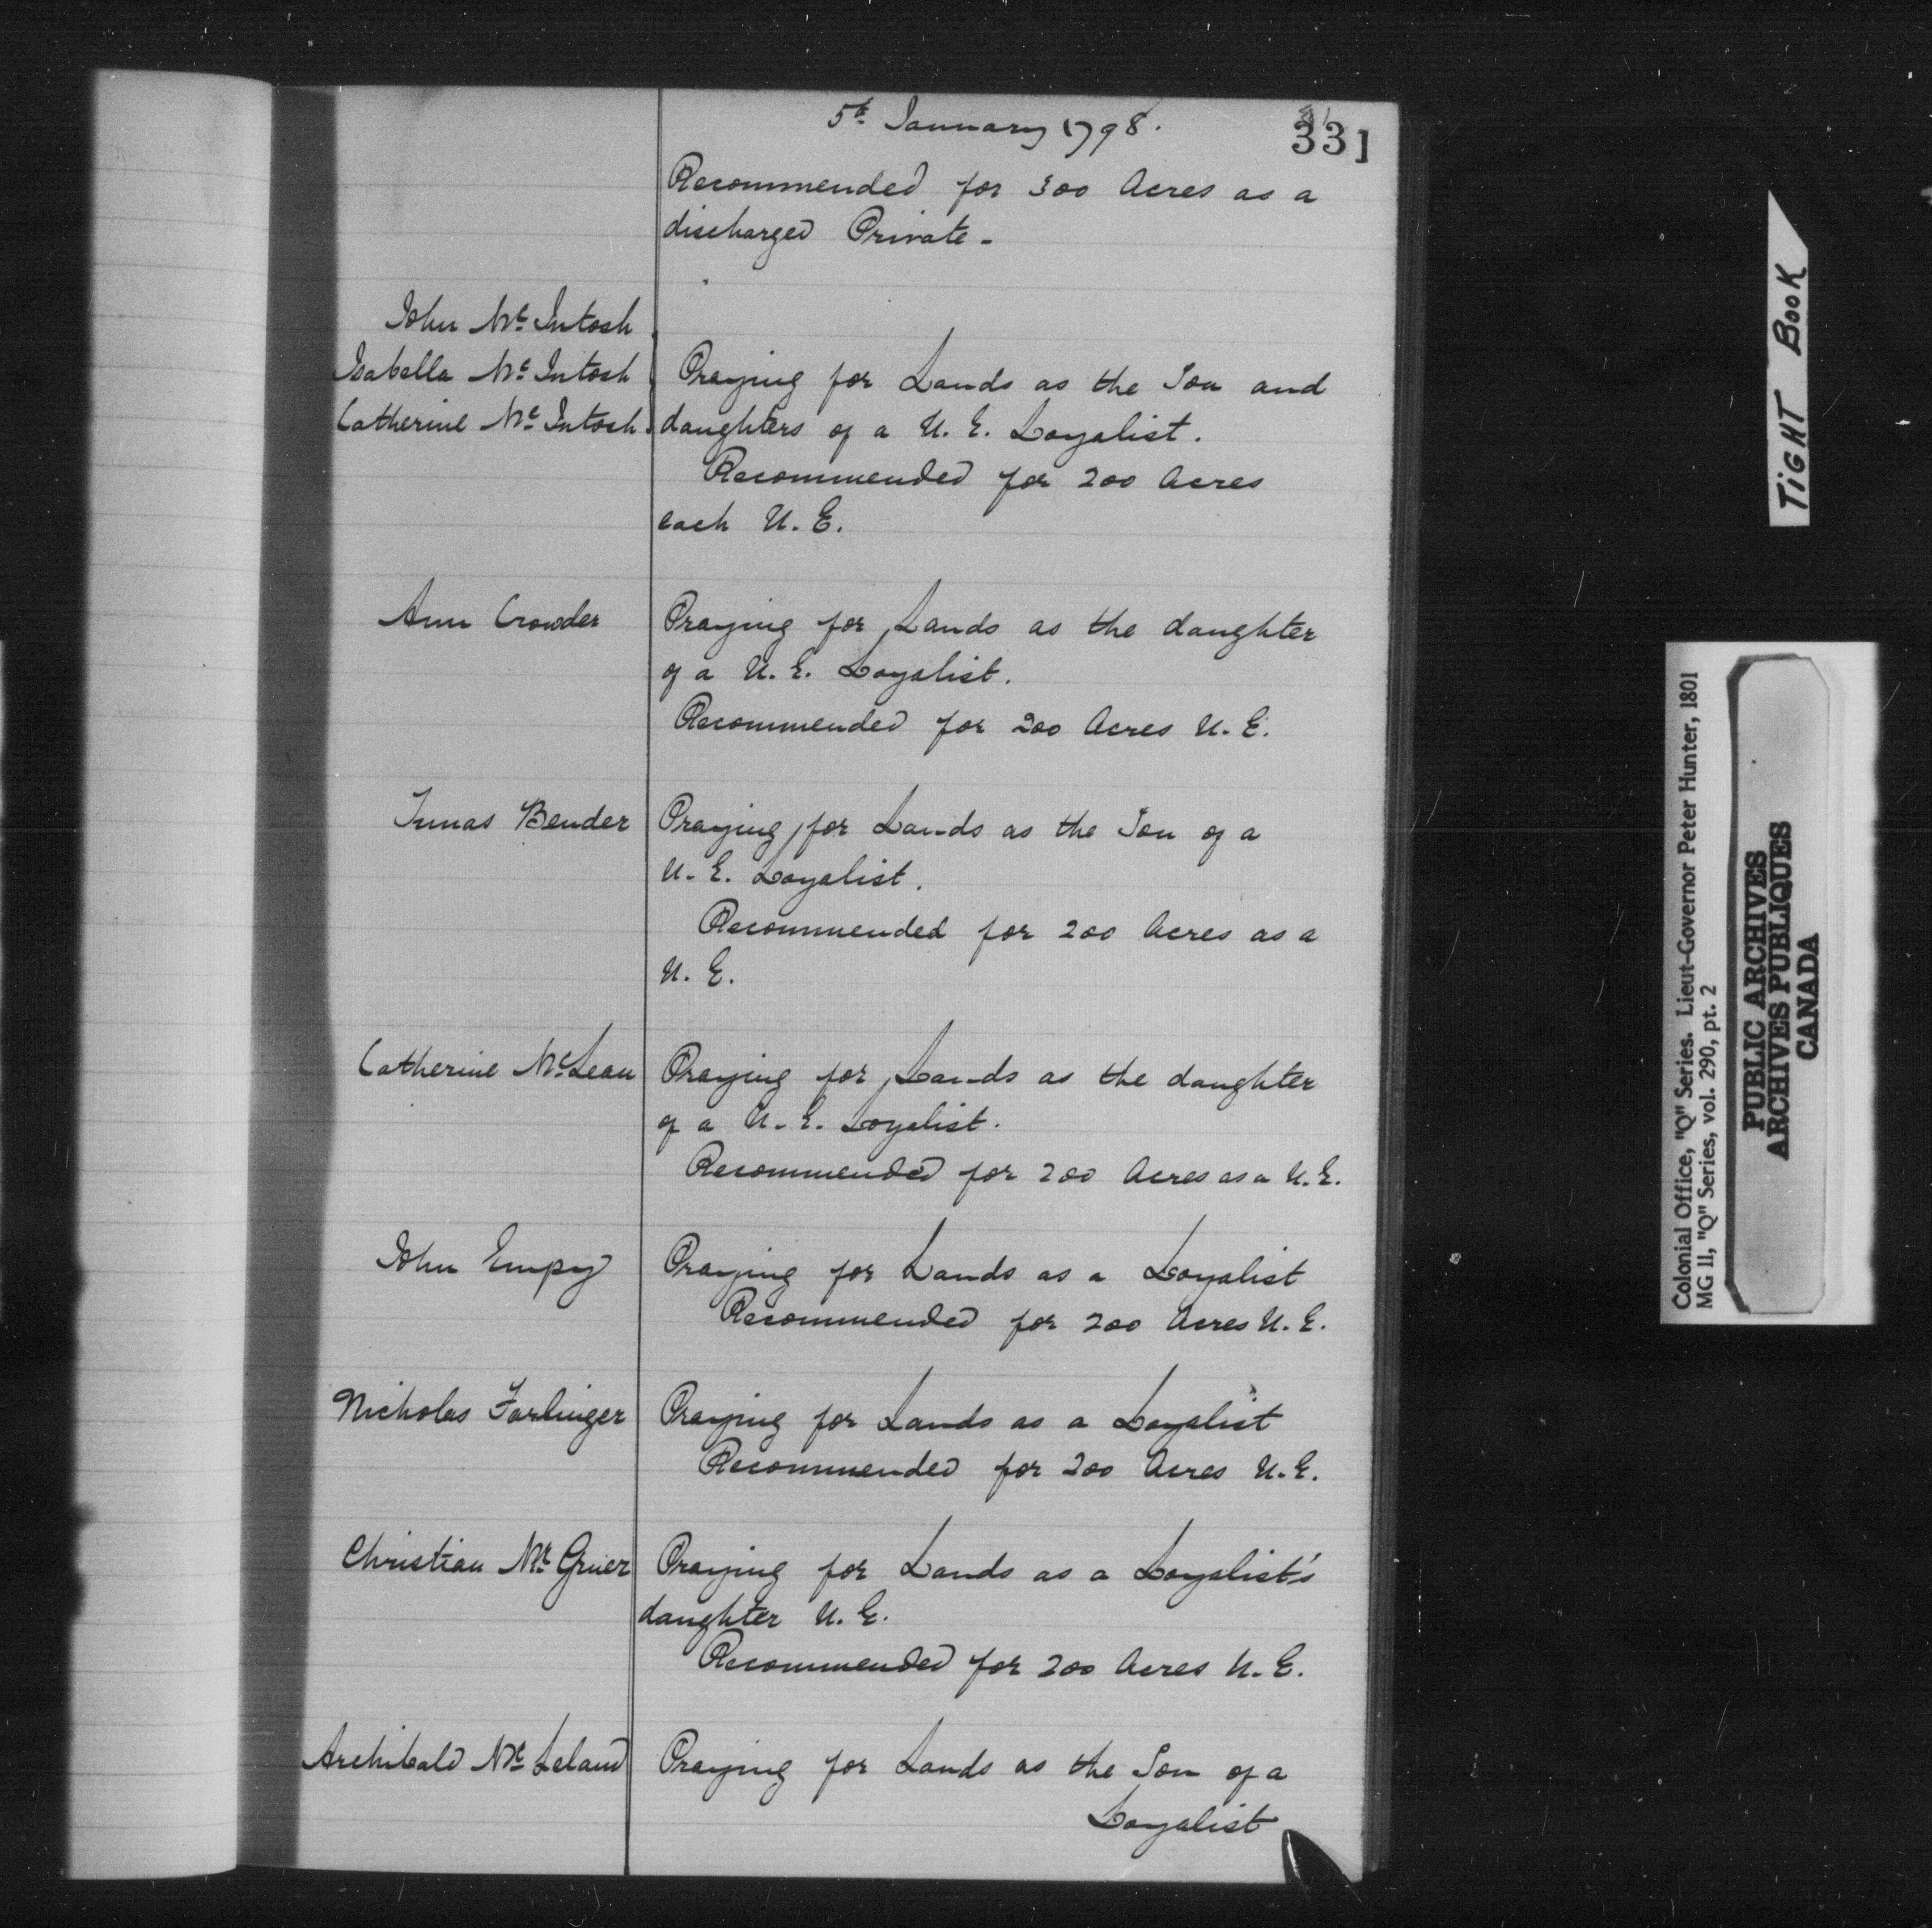 5th January 1798.
331
Recommended for 300 Acres as a
discharged Private -
John Mc Intosh
Isabella Mc Intosh
Catherine Mc Intosh.
Praying for Lands as the Son and
daughters of a U. E. Loyalist.
Recommended for 200 Acres
each U. E.
Ann Crowder
Praying for Lands as the daughter
of a U. E. Loyalist.
Recommended for 200 Acres U. E.
Bender
Praying for Lands as the Son of a
U. E. Loyalist.
Recommended for 200 Acres as a
U. E.
Catherine McLean
Praying for Lands as the daughter
of a U. E. Loyalist.
Recommended for 200 Acres as a U. E.
John Empy
Praying for Lands as a Loyalist
Recommended for 200 Acres U. E.
Nicholas Farlinger
Praying for Lands as a Loyalist
Recommended for 200 Acres U. E.
Christian Mc Gruer
Praying for Lands as a Loyalist's
daughter U. E.
Recommended for 200 Acres U. E.
Archibald Mc Leland
Praying for Lands as the Son of a
Loyalist
TIGHT BOOK
Colonial Office, "Q" Series. Lieut-Governor Peter Hunter, 1801
MG 11, "Q" Series, vol. 290, pt. 2
PUBLIC ARCHIVES
ARCHIVES PUBLIQUES
CANADA